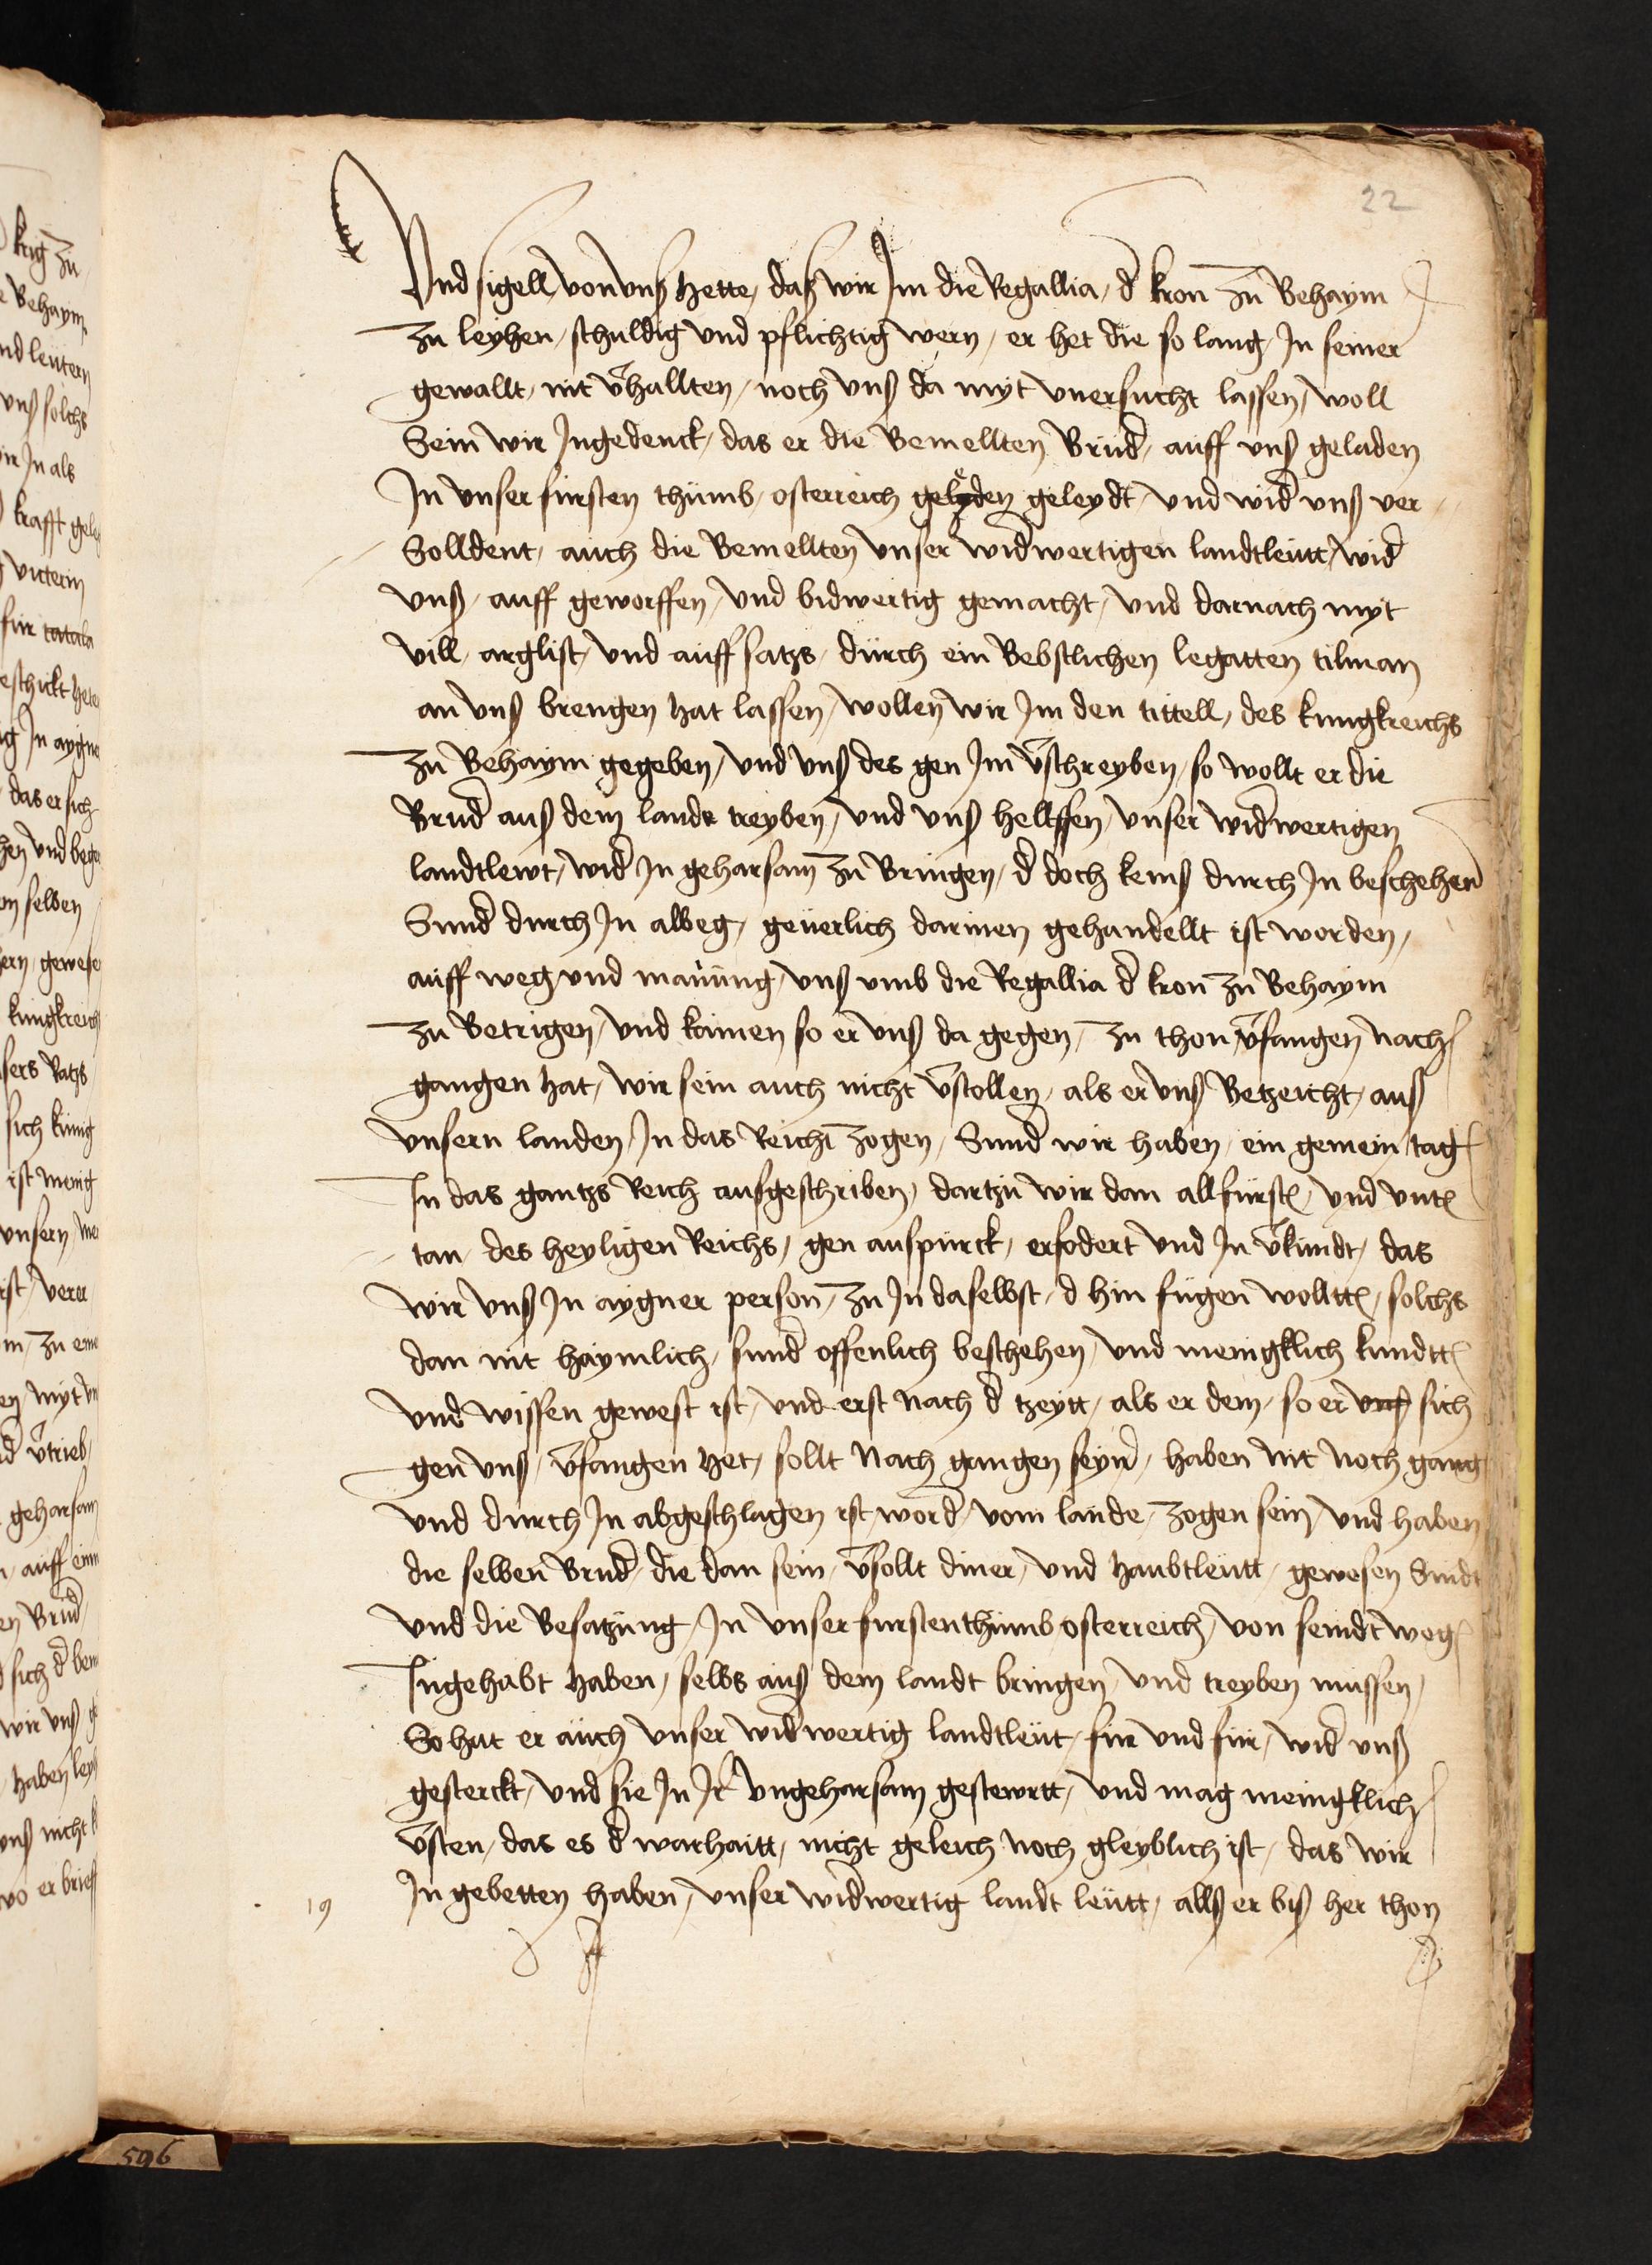 22
Vnd sigell, von vnß hette, daß wir Im die Regallia, d̄ kron zu Behaym
zu leyhen, schuldig vnd pflichtig wern, er het die so lang, In seiner
gewallt, nit v̄hallten, noch vnß da myt vnersucht lassen, woll
Sein wir Ingedenck, das er die Bemellten Brud̄, auff vnß geladen
In vnser fursten thumb, osterreich geleydt, vnd wid̄ vnß ver
Solldent, auch die Bemellten vnser wid̄wertigen landtleutt, wid̄
vnß, auff geworffen, vnd bidwertig gemacht, vnd darnach myt
vill, arglist, vnd auffsatzs, durch ein Bebstlichen legatten tilman
an vnß brengen hat lassen, wollen wir Im den tittell, des kungkreichs
zu Behaym gegeben, vnd vnß des gen Im v̄schreyben, so wollt er die
Brud̄ auß dem lande treyben, vnd vnß hellffen, vnser wid̄wertigen
landtlewt, wid̄ In geharsam zu Bringen, d̄ doch keinß durch In beschehen
Sund̄ durch In albeg, geuerlich darinen gehandellt ist worden,
auff weg vnd manung, vnß vmb die Regallia d̄ kron zu Behaym
zu Betrigen, vnd komen so er vnß da gegen, zu thon v̄fangen nach
gangen hat, wir sein auch nicht v̄stollen, als er vnß Betzeicht, auß
vnsern landen, In das Reich zogen, Sund̄ wir haben, ein gemein tag
In das gantzs Reich außgeschriben, dartzu wir dan all fursten, vnd vnter
tan, des heyligen Reichs, gen auspurck, erfodert vnd In v̄kundt, das
wir vnß In aygner person, zu In daselbst, d hin fugen wolltten, solchs
dan nit haymlich, sund̄ offenlich beschehen, vnd menigklich kundtt
vnd wissen gewest ist, vnd erst nach d̄ tzeytt, als er dem, so er vns sich
gen vnß, v̄fangen het, sollt nach gangen seyn, haben nit noch gang
vnd durch In abgeschlagen ist word̄, vom lande, zogen sein, vnd haben
die selben Brud̄, die dan sein, v̄sollt diner, vnd haubtleutt, gewesen Sindt
vnd die Besatzung, In vnser furstenthumb osterreich, von seindt weg
Ingehabt haben, selbs auß dem landt bringen, vnd treyben mussen,
So hat er auch vnser wid̄wertig landtleut, fur vnd fur, wid̄ vnß
gesterckt, vnd sie In Ir vngeharsam gestewrtt, vnd mag meingklich
v̄sten, das es d̄ warhaitt, nicht geleich noch gleyblich ist, das wir
In gebetten haben, vnser wid̄wertig landt leutt, allß er biß her thon
19
krig zu
Behaym
nd leutern
vnß solchs
ir In als
krafft
fur
eschickt
In aygne
das er sich
vnd
selben
gewese
kungkreich
sers Ratzs
sich kunig
ist menig
vnsern
ist, vere
zu eine
myt vn
v̄trieb
geharsam
auff einn
Brud̄
sich d̄
wir vnß
haben
vnß nicht
wo er brieff
596